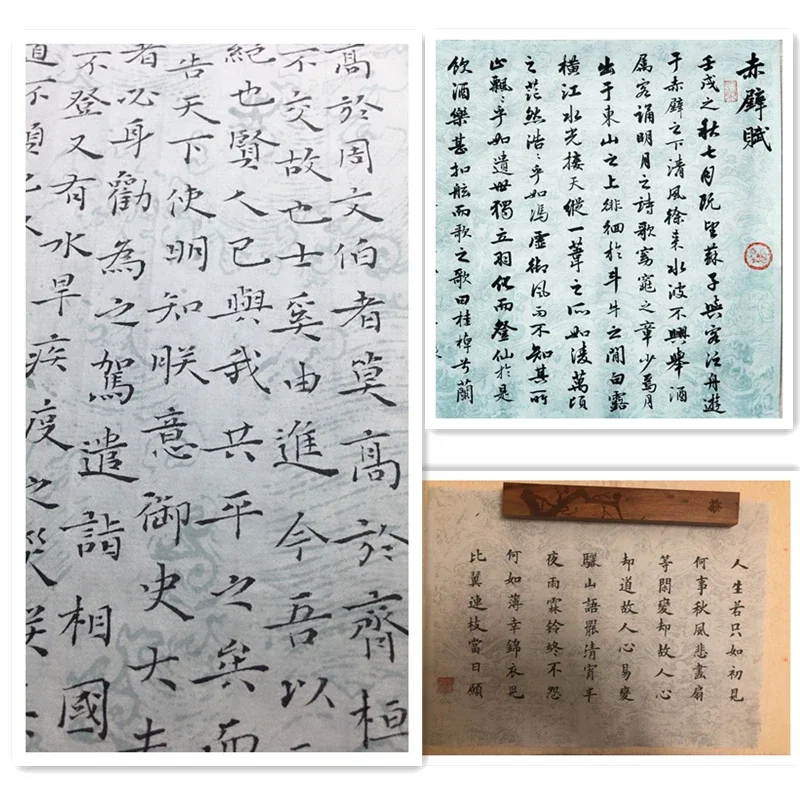 高於周文伯者莫高於齊桓
不交故也士奚由進今吾以
絕也賢人已與我共平之矣而
告天下使明知朕意御史大
者必身勸為之駕遣詣相國
不登又有水旱疾疫之災朕
道不順
赤壁賦
壬戌之秋七月既望蘇子與客泛舟遊
于赤壁之下清風徐来水波不興舉酒
属客誦明月之詩歌窈窕之章少焉月
出于東山之上徘徊於斗牛之間白露
橫江水光接天縱一葦之所如凌萬頃
之茫然浩〻乎如馮虛御風而不知其所
止飄〻乎如遺世獨立羽化而登仙於是
飲酒樂甚扣舷而歌之歌曰桂棹兮蘭
人生若只如初見
何事秋風悲畫扇
等閑變却故人心
却道故人心易變
驪山語罷清宵半
夜雨霖铃終不怨
何如薄幸錦衣兒
比翼連枝當日願